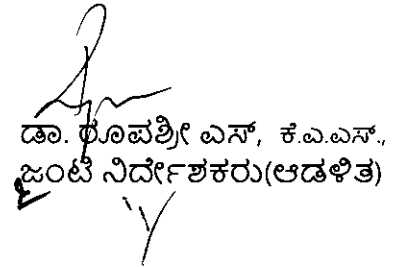 ಡಾ. ರೂಪಶ್ರೀ ಎಸ್, ಕೆ.ಎ.ಎಸ್.,
ಜಂಟಿ ನಿರ್ದೇಶಕರು(ಆಡಳಿತ)